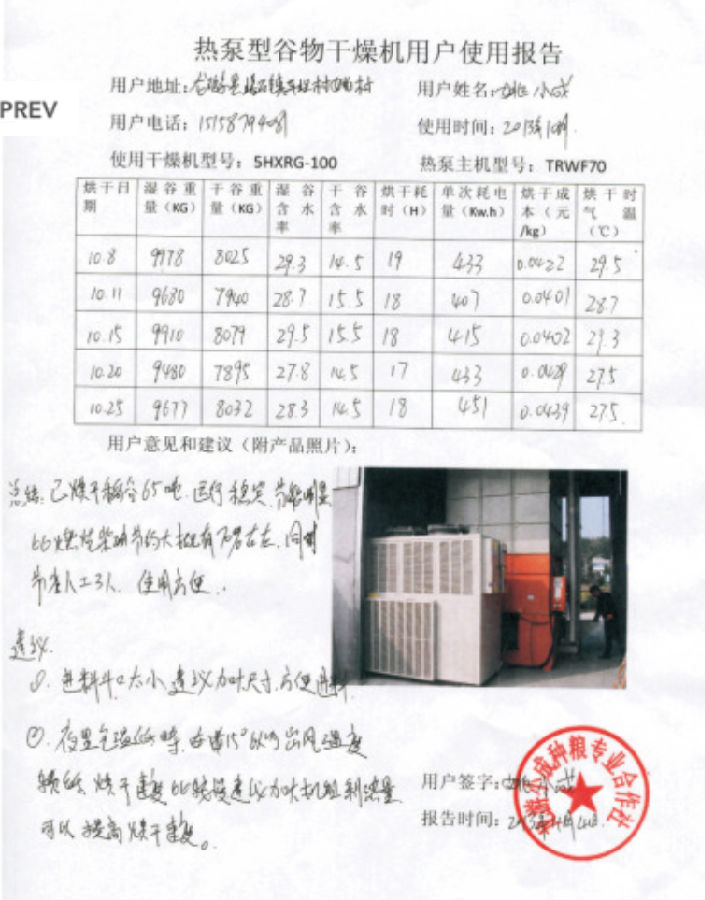 热泵型谷物干燥机用户使用报告
PREV
用户地址: 用户姓名: 小成
用户电话: 使用时间: 2013年10月.
使用干燥机型号: 5HXRG-100 热泵主机型号: TRWF70
烘干日期 湿谷重量 (KG) 干谷重量 (KG) 湿谷含水率 干谷含水率 烘干耗时 (H) 单次耗电量 (Kw.h) 烘干成本 (元/kg) 烘干时气温 (℃)
10.8 9978 8025 29.3 14.5 19 433 0.0422 29.5
10.11 9680 7940 28.7 15.5 18 407 0.0401 28.7
10.15 9910 8079 29.5 15.5 18 415 0.0402 29.3
10.20 9480 7895 27.8 14.5 17 433 0.0429 27.5
10.25 9677 8032 28.3 14.5 18 451 0.0439 27.5
用户意见和建议 (附产品照片):
总结: 已烘干稻谷65吨. 运行稳定 节能明显
比燃烧柴油节约大概有 左右. 同时
节省人工3人. 使用方便.
建议.
①. 进料斗口大小 建议加大尺寸, 方便进料
②. 夜里气温低时, 在 15°以内出风温度
较低 烘干速度比较慢建议加大机组制热量
可以提高烘干速度。
用户签字: 小成
报告时间:
小成种粮专业合作社